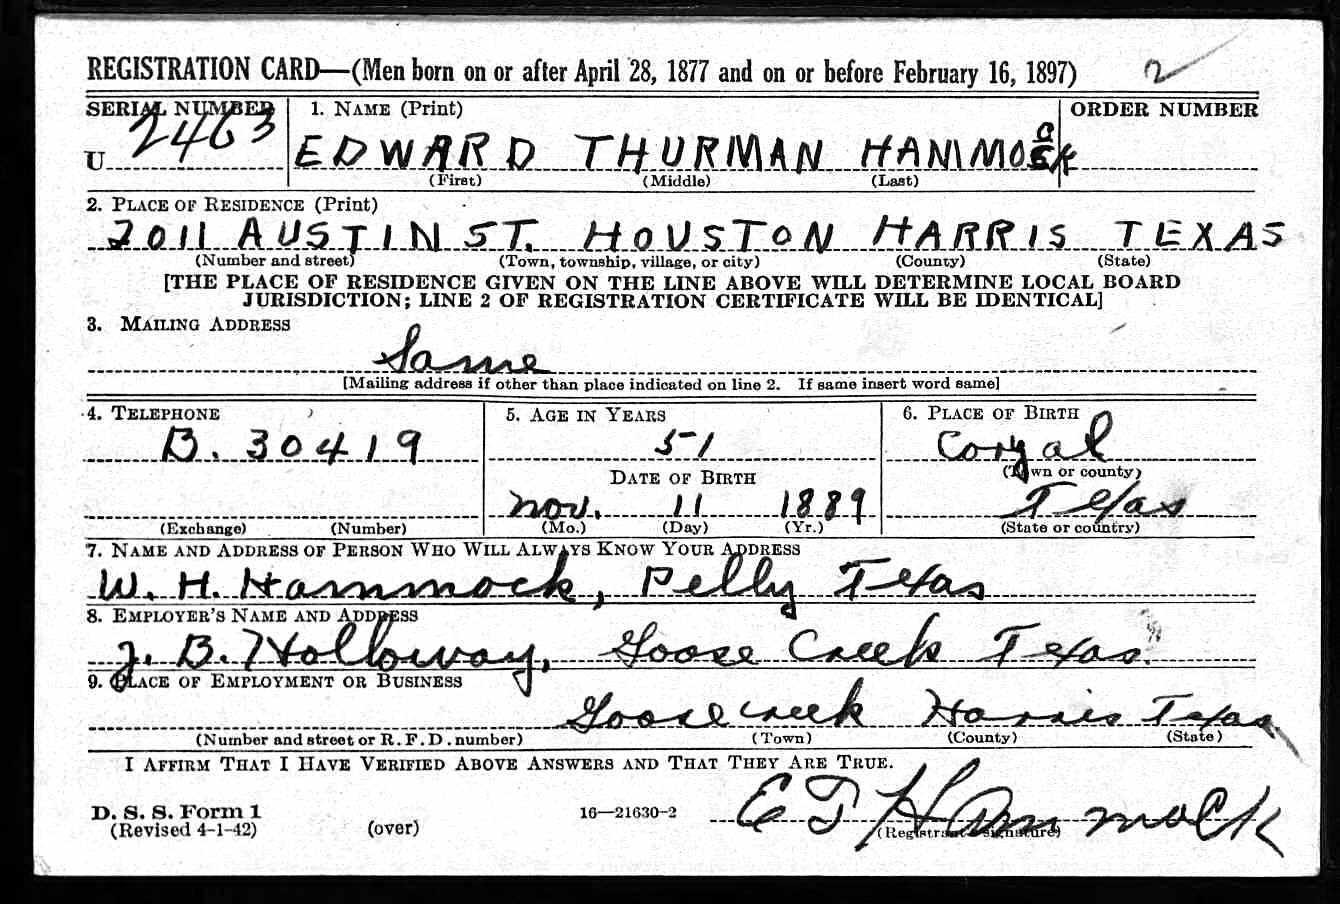 REGISTRATION CARD—(Men born on or after April 28, 1877 and on or before February 16, 1897) 2
SERIAL NUMBER 1. NAME (Print) ORDER NUMBER
U 2463 EDWARD THURMAN HAMMOCK
(First) (Middle) (Last)
2. PLACE OF RESIDENCE (Print)
2011 AUSTIN ST. HOUSTON HARRIS TEXAS
(Number and street) (Town, township, village, or city) (County) (State)
[THE PLACE OF RESIDENCE GIVEN ON THE LINE ABOVE WILL DETERMINE LOCAL BOARD
JURISDICTION; LINE 2 OF REGISTRATION CERTIFICATE WILL BE IDENTICAL]
3. MAILING ADDRESS
Same
[Mailing address if other than place indicated on line 2. If same insert word same]
4. TELEPHONE 5. AGE IN YEARS 6. PLACE OF BIRTH
B. 30419 51 Coryal
(Town or county)
DATE OF BIRTH
Nov. 11 1889 Texas
(Exchange) (Number) (Mo.) (Day) (Yr.) (State or country)
7. NAME AND ADDRESS OF PERSON WHO WILL ALWAYS KNOW YOUR ADDRESS
W. H. Hammock, Pelly Texas
8. EMPLOYER'S NAME AND ADDRESS
J. B. Holloway, Goose Creek Texas.
9. PLACE OF EMPLOYMENT OR BUSINESS
Goosecreek Harris Texas
(Number and street or R. F. D. number) (Town) (County) (State)
I AFFIRM THAT I HAVE VERIFIED ABOVE ANSWERS AND THAT THEY ARE TRUE.
D. S. S. Form 1
(Revised 4-1-42) (over) 16—21630-2 E T Hammock
(Registrant's signature)